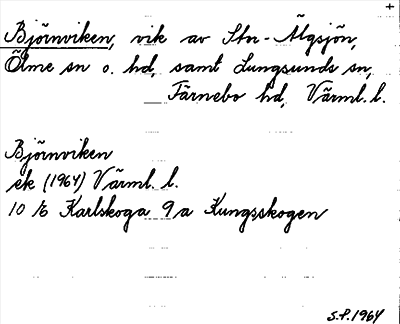 Björnviken, vik av Stor-Älgsjön,
Ölme sn o. hd, samt Lungsunds sn,
Färnebo hd, Värml. l.
Björnviken
ek (1964) Värml. l.
10 E Karlskoga 9 a Kungsskogen
S.P. 1964